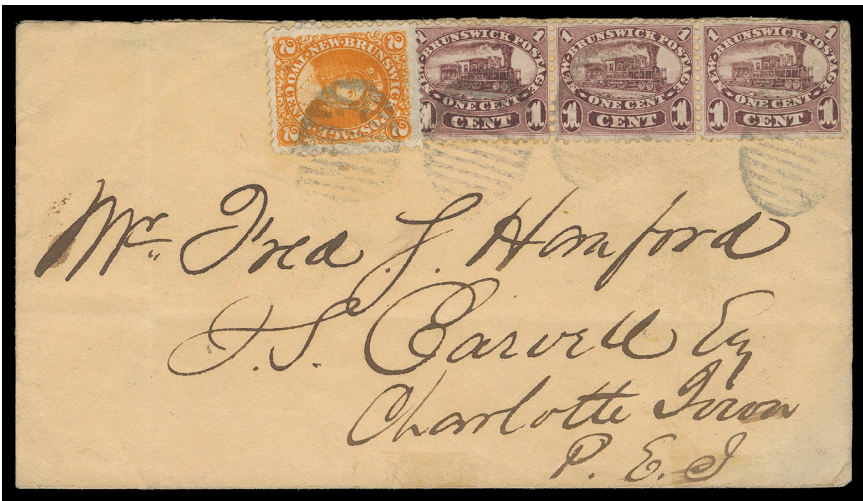 2 NEW·BRUNSWICK 2
POSTAGE
TWO CENTS
2 2
1 NEW·BRUNSWICK POSTAGE· 1
·ONE CENT·
1 CENT 1
1 NEW·BRUNSWICK POSTAGE· 1
·ONE CENT·
1 CENT 1
1 NEW·BRUNSWICK POSTAGE· 1
·ONE CENT·
1 CENT 1
Mr. Fred J. Hanford
J. S. Carvell Esq
Charlotte Town
P. E. I